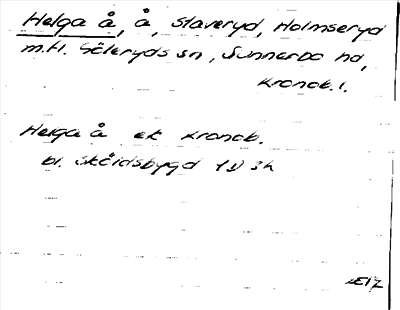 Helga å, å, Slaveryd, Holmseryd
m.fl. Göteryds sn, Sunnerbo hd,
Kronob. l.
Helga å ek Kronob.
bl. Sköldsbygd 1D 3h